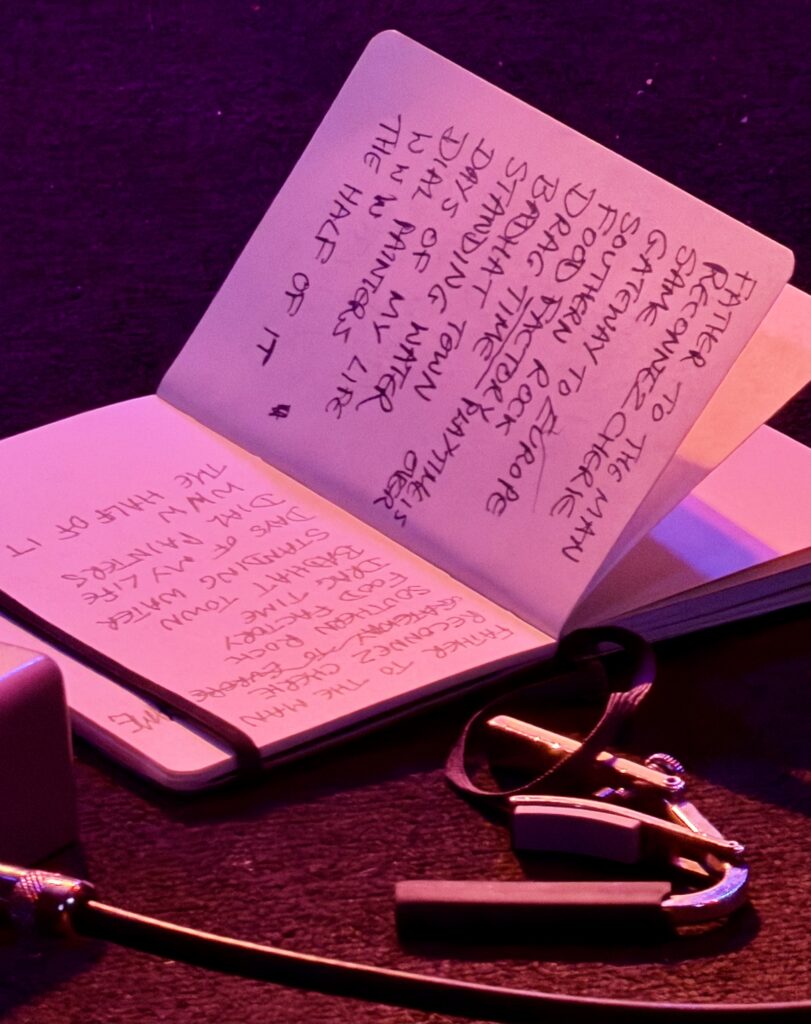 FATHER TO THE MAN
RECONNEZ CHERIE
SAME
GATEWAY TO EUROPE
SOUTHERN ROCK
FOOD FACTORY
DRAG TIME PLAYTIME IS OVER
BADHAT TOWN
STANDING WATER
DAYS OF MY LIFE
DIAL PAINTERS
W W W
THE HALF OF IT
FATHER TO THE MAN
RECONNEZ CHERIE
GATEWAY TO EUROPE
SOUTHERN ROCK
FOOD FACTORY
DRAG TIME
BADHAT TOWN
STANDING WATER
DAYS OF MY LIFE
DIAL PAINTERS
WWW
THE HALF OF IT